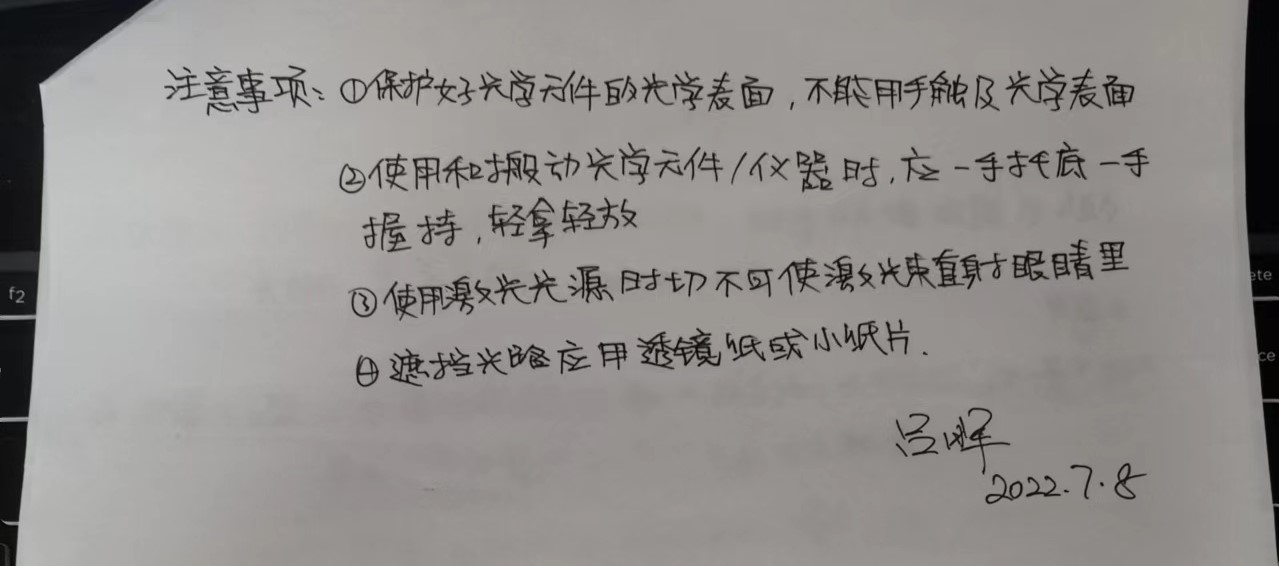 注意事项：①保护好光学元件的光学表面，不能用手触及光学表面
②使用和搬动光学元件/仪器时，应一手托底一手
握持，轻拿轻放
③使用激光光源时切不可使激光束直射眼睛里
④遮挡光路应用透镜纸或小纸片.
吕晖
2022.7.8
f2
ete
ce